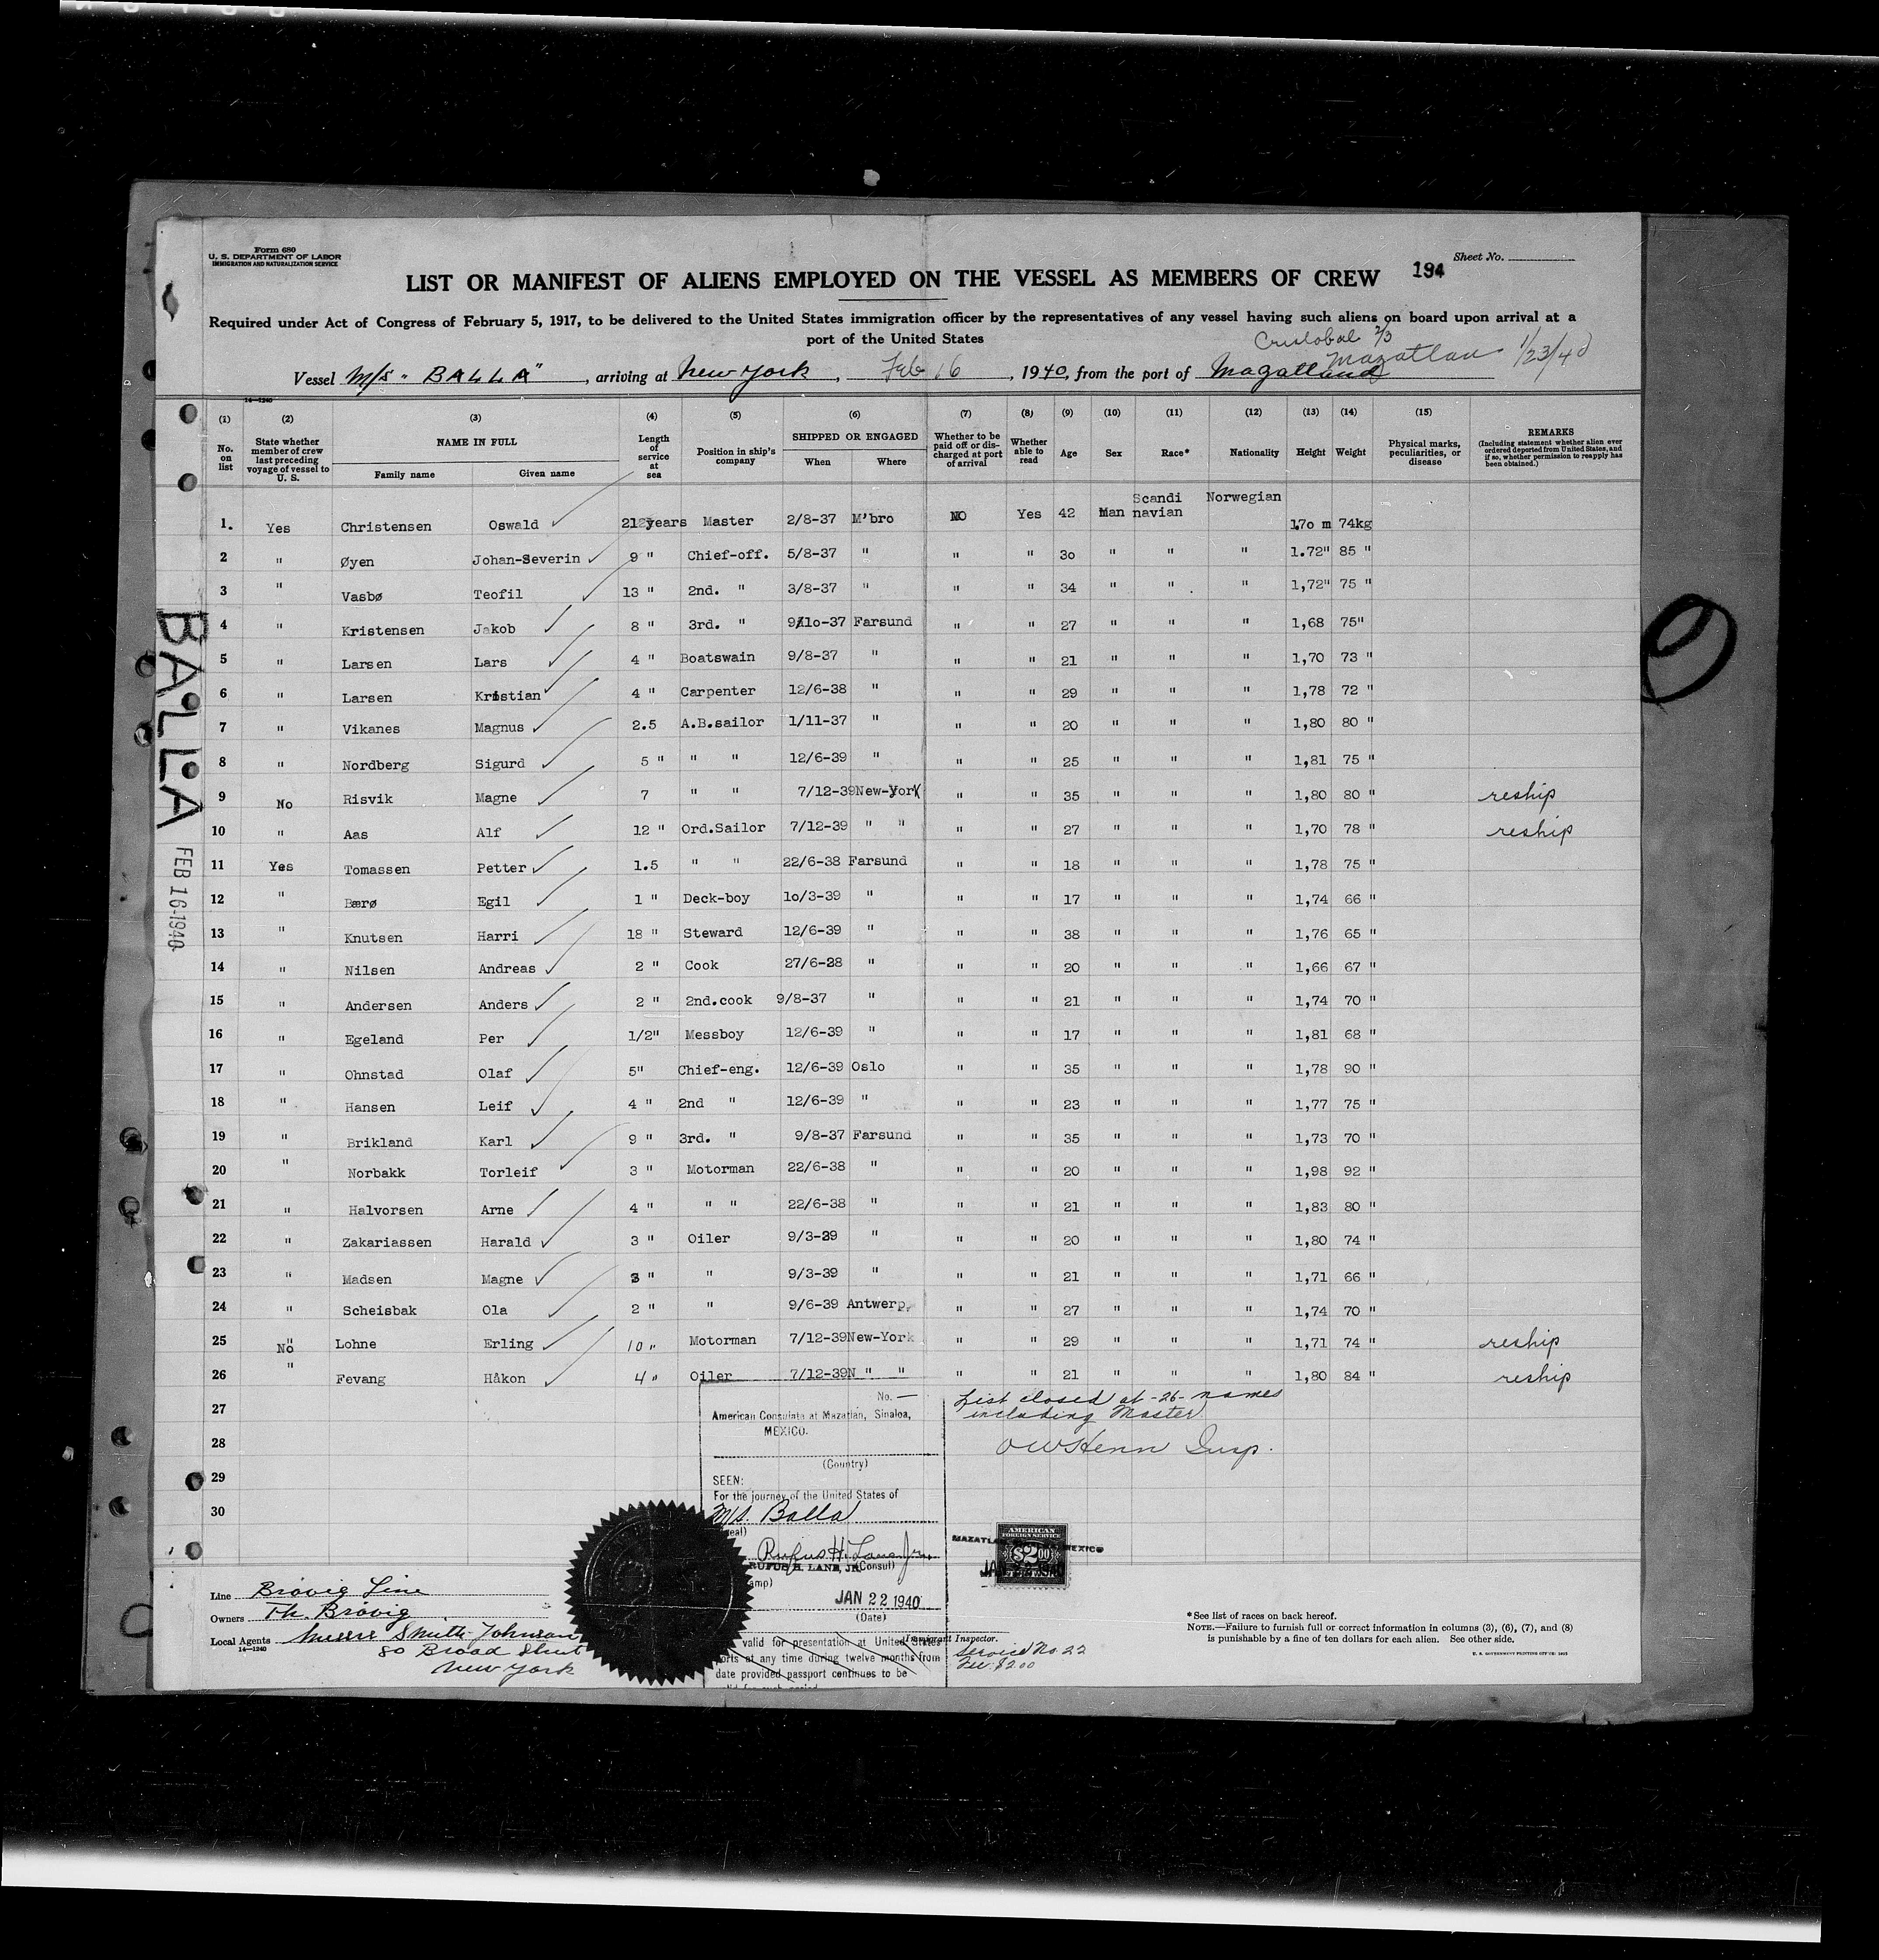 Form 680
U. S. DEPARTMENT OF LABOR
IMMIGRATION AND NATURALIZATION SERVICE
Sheet No.
LIST OR MANIFEST OF ALIENS EMPLOYED ON THE VESSEL AS MEMBERS OF CREW 194
Required under Act of Congress of February 5, 1917, to be delivered to the United States immigration officer by the representatives of any vessel having such aliens on board upon arrival at a
port of the United States
Cristobal 2/3
Mazatlan 1/23/40
Vessel M/S "BALLA", arriving at New York, Feb 16, 1940, from the port of
14—1240
(1) (2) (3) (4) (5) (6) (7) (8) (9) (10) (11) (12) (13) (14) (15)
No. on list
State whether member of crew last preceding voyage of vessel to U. S.
NAME IN FULL
Family name Given name
Length of service at sea
Position in ship's company
SHIPPED OR ENGAGED
When Where
Whether to be paid off or discharged at port of arrival
Whether able to read
Age Sex Race* Nationality Height Weight
Physical marks, peculiarities, or disease
REMARKS
(Including statement whether alien ever ordered deported from United States, and if so, whether permission to reapply has been obtained.)
1. Yes Christensen Oswald 21 years Master 2/8-37 M'bro NO Yes 42 Man Scandi navian Norwegian 1.7o m 74kg
2 " Øyen Johan-Severin 9 " Chief-off. 5/8-37 " " " 3o " " " 1.72" 85 "
3 " Vasbø Teofil 13 " 2nd. " 3/8-37 " " " 34 " " " 1,72" 75 "
4 " Kristensen Jakob 8 " 3rd. " 9/1o-37 Farsund " " 27 " " " 1,68 75"
5 " Larsen Lars 4 " Boatswain 9/8-37 " " " 21 " " " 1,70 73 "
6 " Larsen Kristian 4 " Carpenter 12/6-38 " " " 29 " " " 1,78 72 "
7 " Vikanes Magnus 2.5 A.B.sailor 1/11-37 " " " 20 " " " 1,80 80 "
8 " Nordberg Sigurd 5 " " " 12/6-39 " " " 25 " " " 1,81 75 "
9 No Risvik Magne 7 " " 7/12-39 New-York " " 35 " " " 1,80 80 " reship
10 " Aas Alf 12 " Ord.Sailor 7/12-39 " " " " 27 " " " 1,70 78 " reship
11 Yes Tomassen Petter 1.5 " " 22/6-38 Farsund " " 18 " " " 1,78 75 "
12 " Bærø Egil 1 " Deck-boy 1o/3-39 " " " 17 " " " 1,74 66 "
13 " Knutsen Harri 18 " Steward 12/6-39 " " " 38 " " " 1,76 65 "
14 " Nilsen Andreas 2 " Cook 27/6-38 " " " 20 " " " 1,66 67 "
15 " Andersen Anders 2 " 2nd.cook 9/8-37 " " " 21 " " " 1,74 70 "
16 " Egeland Per 1/2" Messboy 12/6-39 " " " 17 " " " 1,81 68 "
17 " Ohnstad Olaf 5" Chief-eng. 12/6-39 Oslo " " 35 " " " 1,78 90 "
18 " Hansen Leif 4 " 2nd " 12/6-39 " " " 23 " " " 1,77 75 "
19 " Brikland Karl 9 " 3rd. " 9/8-37 Farsund " " 35 " " " 1,73 70 "
20 " Norbakk Torleif 3 " Motorman 22/6-38 " " " 20 " " " 1,98 92 "
21 " Halvorsen Arne 4 " " " 22/6-38 " " " 21 " " " 1,83 80 "
22 " Zakariassen Harald 3 " Oiler 9/3-39 " " " 20 " " " 1,80 74 "
23 " Madsen Magne 3 " " 9/3-39 " " " 21 " " " 1,71 66 "
24 " Scheisbak Ola 2 " " 9/6-39 Antwerp. " " 27 " " " 1,74 70 "
25 No Lohne Erling 10 " Motorman 7/12-39 New-York " " 29 " " " 1,71 74 " reship
26 " Fevang Håkon 4 " Oiler 7/12-39 N " " " " 21 " " " 1,80 84 " reship
27
28
29
30
BALLA
FEB 16 1940
No. —
American Consulate at Mazatlan, Sinaloa,
MEXICO.
(Country)
SEEN:
For the journey of the United States of
M/S. Balla
Rufus H. Lane Jr.
RUFUS H. LANE, JR. (Consul)
JAN 22 1940
(Date)
valid for presentation at United States
ports at any time during twelve months from
date provided passport continues to be
List closed at -26- names
including Master
OWHenn Insp.
AMERICAN
FOREIGN SERVICE
$2.00
MAZATLAN MEXICO
Immigrant Inspector.
Service No 22
Fee $2.00
Line Brövig Line
Owners Th. Brövig
Local Agents Messrs Smith-Johnson
14—1240
80 Broad Street
New York
*See list of races on back hereof.
NOTE.—Failure to furnish full or correct information in columns (3), (6), (7), and (8)
is punishable by a fine of ten dollars for each alien. See other side.